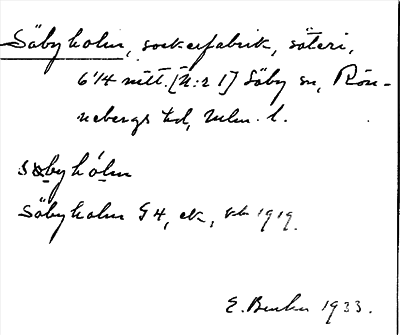 Säbyholm, sockerfabrik, säteri,
6 1/4 mtl. [N:r 1] Säby sn, Rön-
nebergs hd, Mlm. l.
säbyhólm
Säbyholm G4, ek, 1919.
E. 1933.